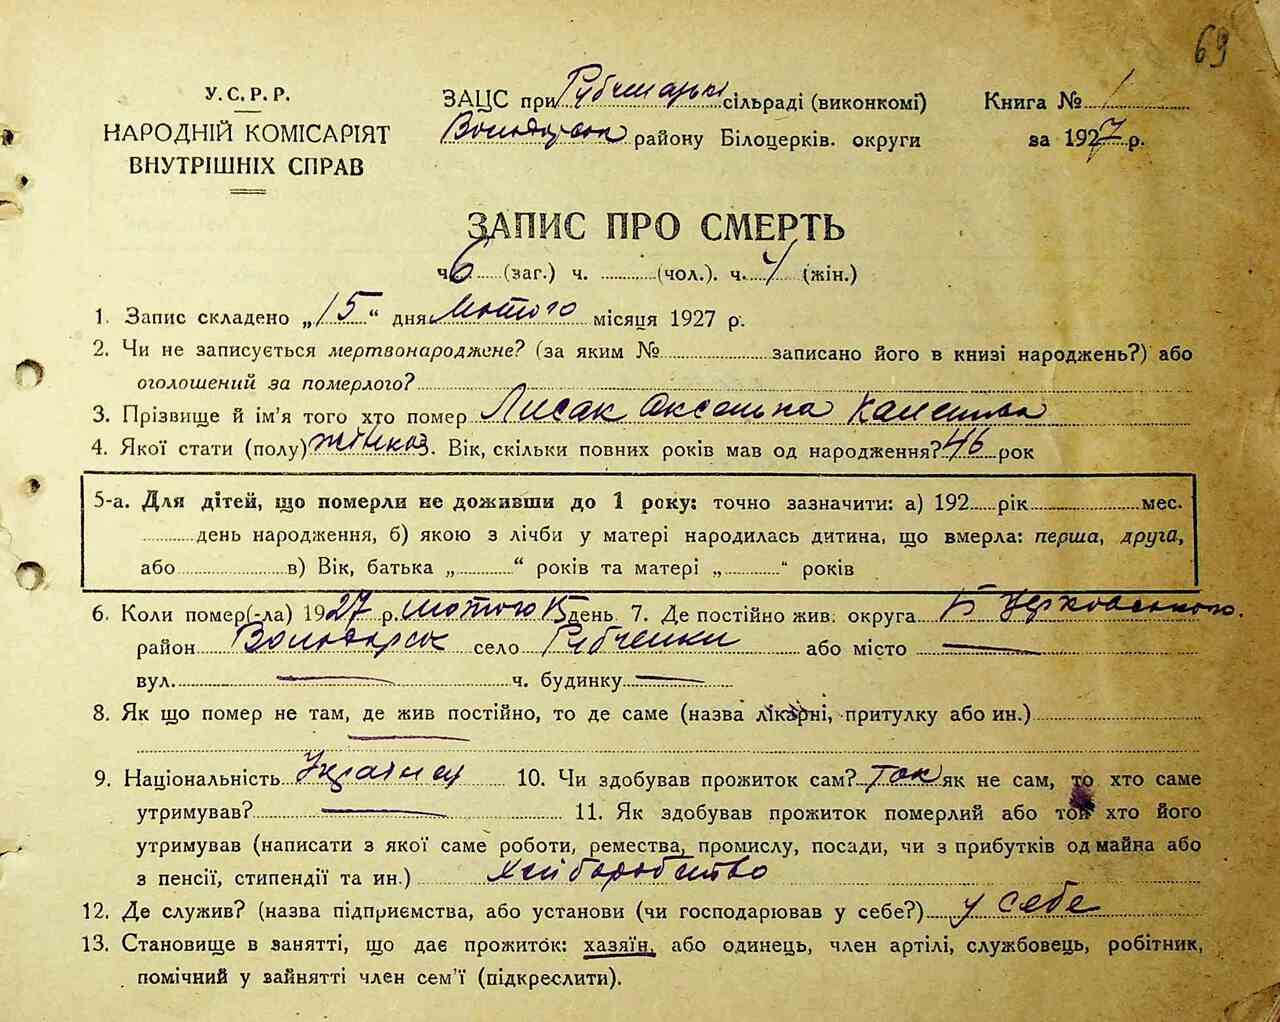 69
У.С.Р.Р.
НАРОДНІЙ КОМІСАРІЯТ
ВНУТРІШНІХ СПРАВ
ЗАЦС при сільраді (виконкомі)
району Білоцерків. округи
Книга № 1
за 1927 р.
ЗАПИС ПРО СМЕРТЬ
ч. 6 (заг.) ч. (чол.). ч. 4 (жін.)
1. Запис складено „15“ дня лютого місяця 1927 р.
2. Чи не записується мертвонароджене? (за яким № записано його в книзі народжень?) або
оголошений за померлого?
3. Прізвище й ім'я того хто помер Лисак
4. Якої стати (полу) Вік, скільки повних років мав од народження? 46 рок
5-а. Для дітей, що померли не доживши до 1 року: точно зазначити: а) 192 рік мес.
день народження, б) якою з лічби у матері народилась дитина, що вмерла: перша, друга,
або в) Вік, батька „ “ років та матері „ “ років
6. Коли помер(-ла) 1927 р. лютого 15 день 7. Де постійно жив: округа Б Церковського.
район село Рубченки або місто
вул. ч. будинку
8. Як що помер не там, де жив постійно, то де саме (назва лікарні, притулку або ин.)
9. Національність 10. Чи здобував прожиток сам? так як не сам, то хто саме
утримував? 11. Як здобував прожиток померлий або той хто його
утримував (написати з якої саме роботи, ремества, промислу, посади, чи з прибутків од майна або
з пенсії, стипендії та ин.) Хліборобство
12. Де служив? (назва підприємства, або установи (чи господарював у себе?) у себе
13. Становище в занятті, що дає прожиток: хазяїн, або одинець, член артілі, службовець, робітник,
помічний у зайнятті член сем'ї (підкреслити).